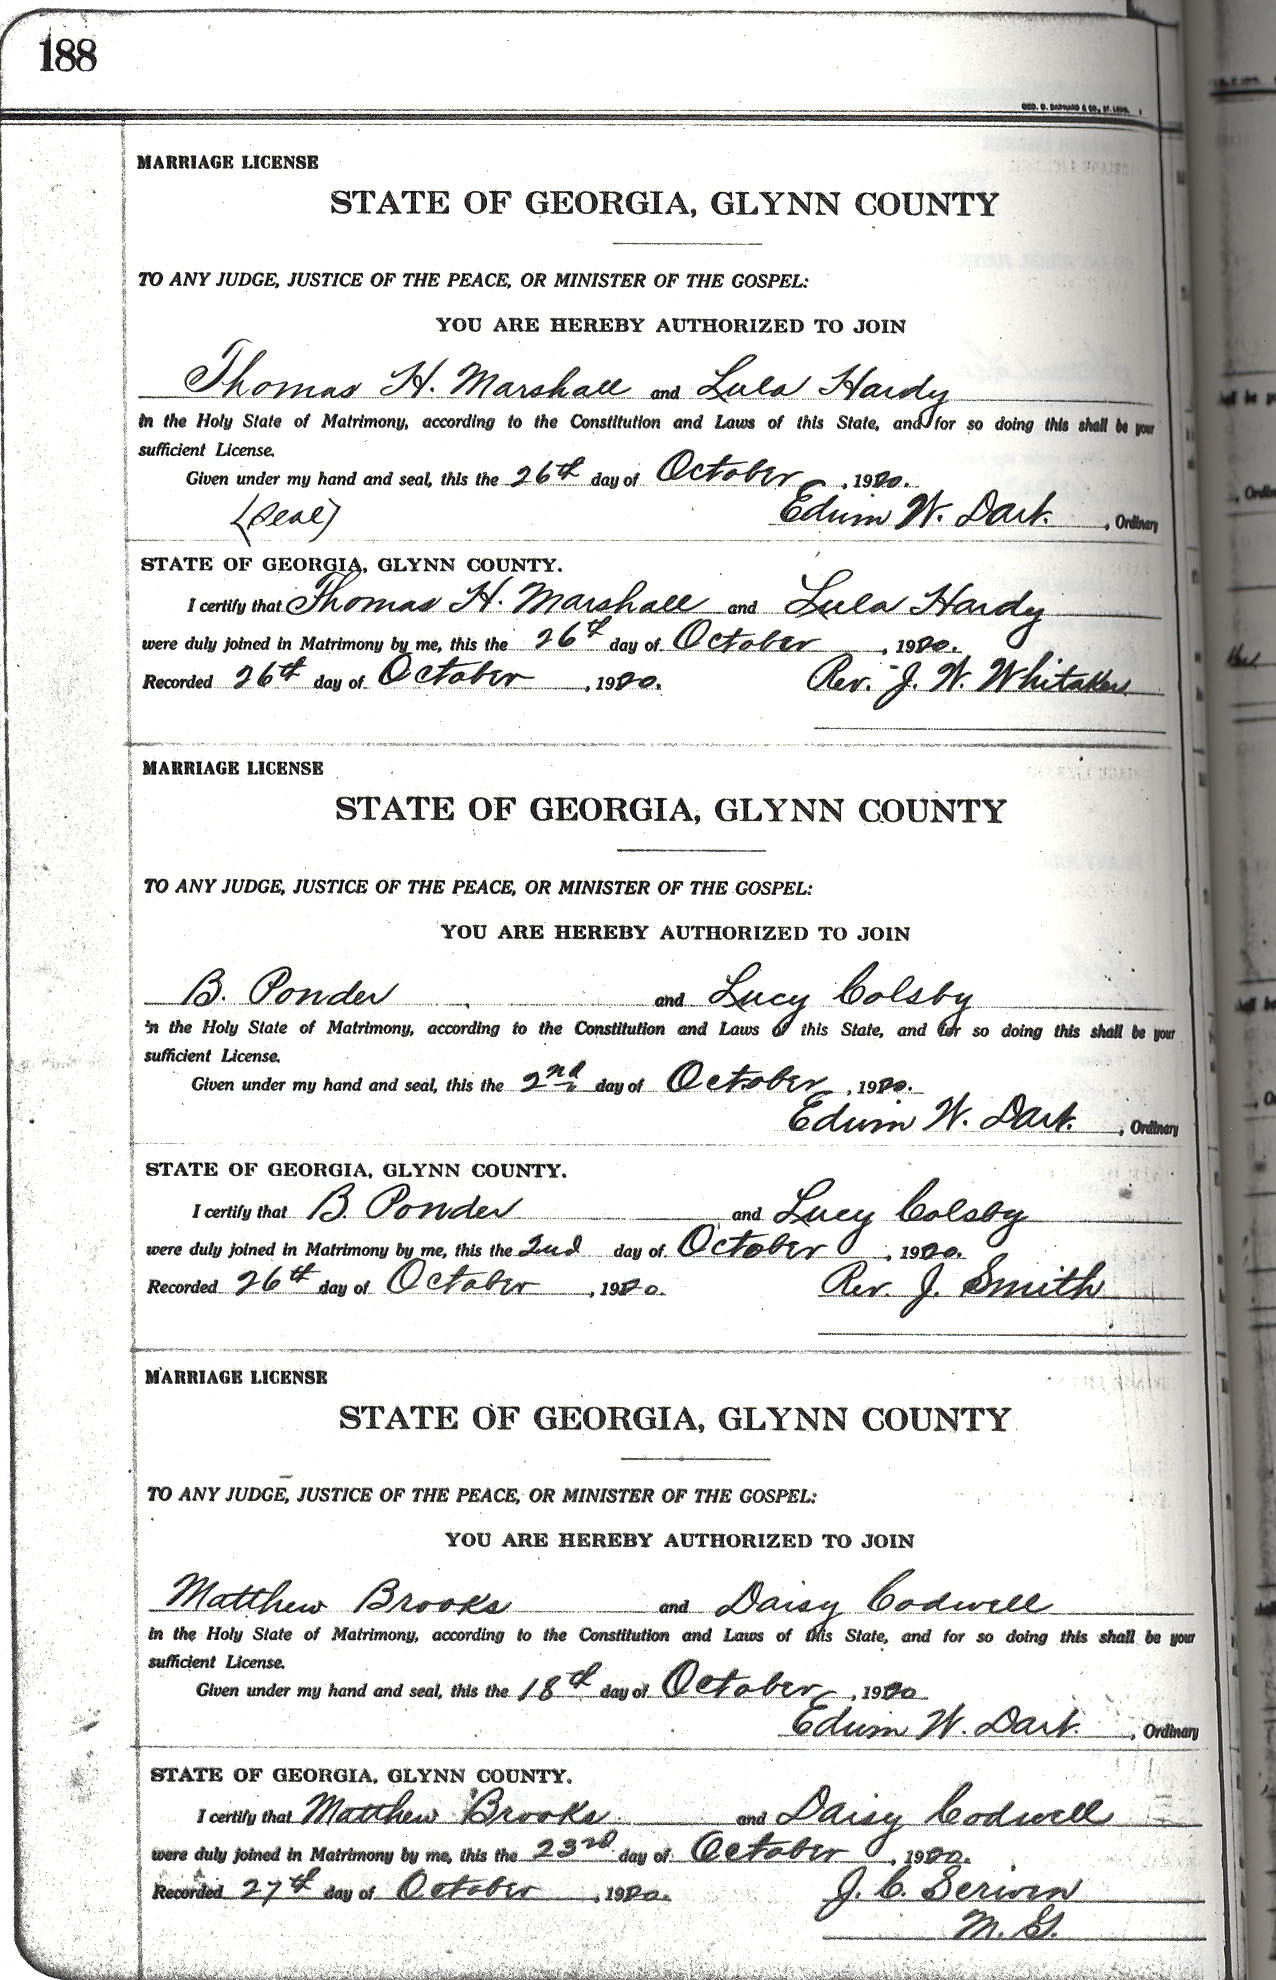 188
GEO. D. BARNARD & CO., ST. LOUIS.
MARRIAGE LICENSE
STATE OF GEORGIA, GLYNN COUNTY
TO ANY JUDGE, JUSTICE OF THE PEACE, OR MINISTER OF THE GOSPEL:
YOU ARE HEREBY AUTHORIZED TO JOIN
Thomas H. Marshall and Lula Hardy
in the Holy State of Matrimony, according to the Constitution and Laws of this State, and for so doing this shall be your
sufficient License.
Given under my hand and seal, this the 26th day of October, 1920.
(Seal) Edwin W. Dart., Ordinary
STATE OF GEORGIA, GLYNN COUNTY.
I certify that Thomas H. Marshall and Lula Hardy
were duly joined in Matrimony by me, this the 26th day of October, 1920.
Recorded 26th day of October, 1920. Rev. J. W. Whitaker
MARRIAGE LICENSE
STATE OF GEORGIA, GLYNN COUNTY
TO ANY JUDGE, JUSTICE OF THE PEACE, OR MINISTER OF THE GOSPEL:
YOU ARE HEREBY AUTHORIZED TO JOIN
B. Ponder and Lucy Colsby
in the Holy State of Matrimony, according to the Constitution and Laws of this State, and for so doing this shall be your
sufficient License.
Given under my hand and seal, this the 2nd day of October, 1920.
Edwin W. Dart., Ordinary
STATE OF GEORGIA, GLYNN COUNTY.
I certify that B. Ponder and Lucy Colsby
were duly joined in Matrimony by me, this the 2nd day of October, 1920.
Recorded 26th day of October, 1920. Rev. J. Smith
MARRIAGE LICENSE
STATE OF GEORGIA, GLYNN COUNTY
TO ANY JUDGE, JUSTICE OF THE PEACE, OR MINISTER OF THE GOSPEL:
YOU ARE HEREBY AUTHORIZED TO JOIN
Matthew Brooks and Daisy Codwell
in the Holy State of Matrimony, according to the Constitution and Laws of this State, and for so doing this shall be your
sufficient License.
Given under my hand and seal, this the 18th day of October, 1920
Edwin W. Dart., Ordinary
STATE OF GEORGIA, GLYNN COUNTY.
I certify that Matthew Brooks and Daisy Codwell
were duly joined in Matrimony by me, this the 23rd day of October, 1920.
Recorded 27th day of October, 1920. J. C. Serwin
M. G.